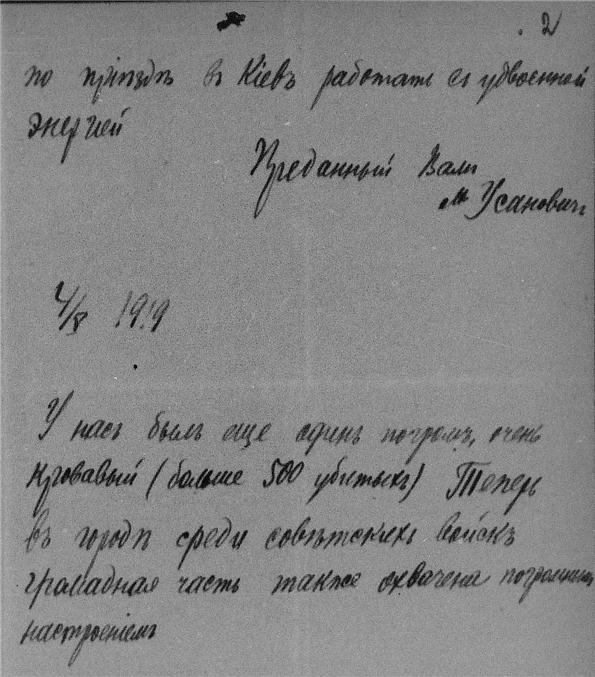 2
по пріѣздѣ въ Кіевъ работать съ удвоенной
энергіей
Преданный Вамъ
М Усановичъ
4/X 1919
У насъ былъ еще одинъ погромъ, очень
кровавый (больше 500 убитыхъ) Теперь
въ городѣ среди совѣтскихъ войскъ
громадная часть также охвачена погромнымъ
настроеніемъ